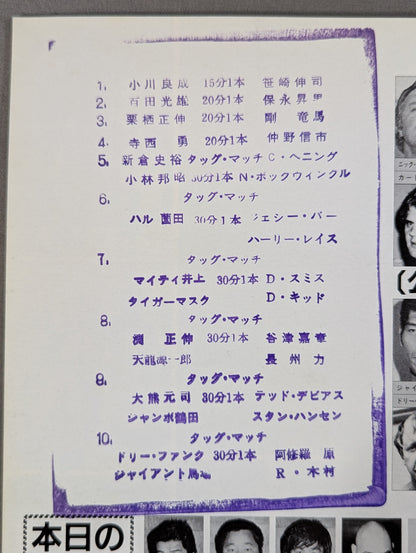 1. 小川良成 15分1本 笹崎伸司
2. 百田光雄 20分1本 保永昇男
3. 栗栖正伸 20分1本 剛竜馬
4. 寺西勇 20分1本 仲野信市
5. 新倉史裕 タッグ・マッチ C・ヘニング
小林邦昭 30分1本 N・ボックウィンクル
6. タッグ・マッチ
ハル薗田 30分1本 ジェシー・バー
ハーリー・レイス
7. タッグ・マッチ
マイティ井上 30分1本 D・スミス
タイガーマスク D・キッド
8. タッグ・マッチ
渕正伸 30分1本 谷津嘉章
天龍源一郎 長州力
9. タッグ・マッチ
大熊元司 30分1本 テッド・デビアス
ジャンボ鶴田 スタン・ハンセン
10. タッグ・マッチ
ドリー・ファンク 30分1本 阿修羅原
ジャイアント馬場 R・木村
本日の
ニック・
カート
ジャイ
ドリー・